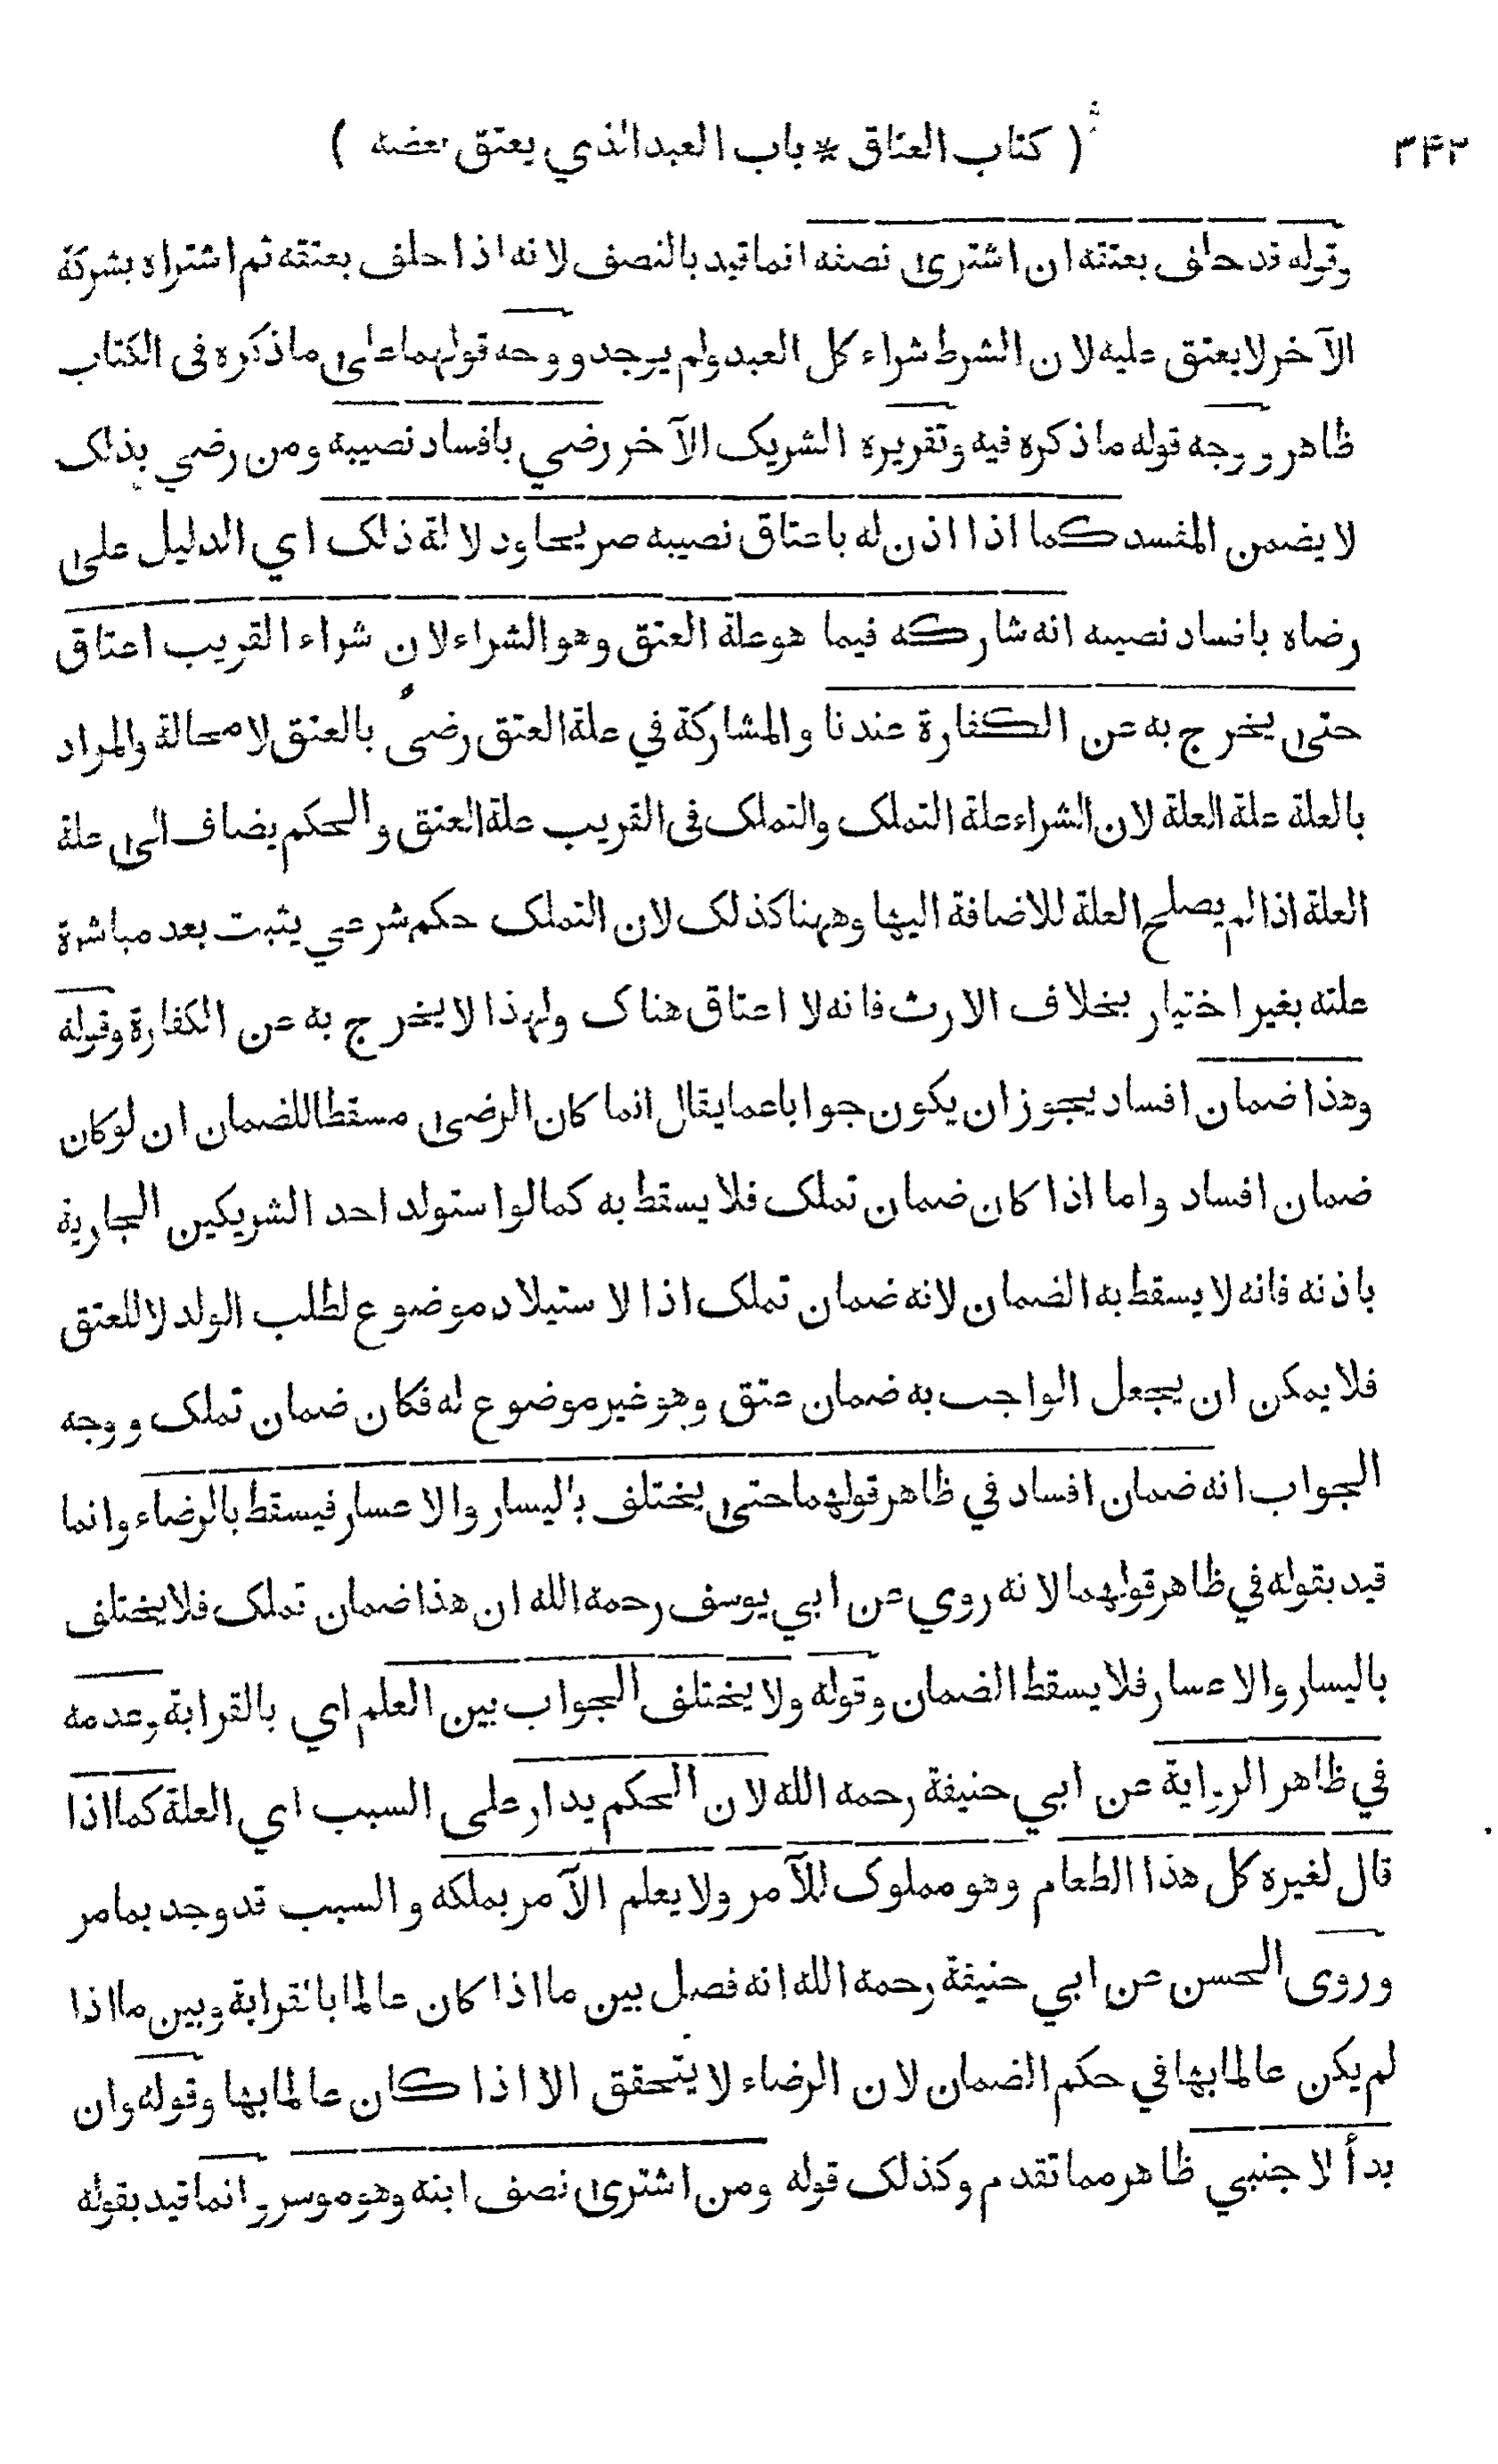 ۳۴۲ ( كتاب العتاق * باب العبد الذي يعتق بعضه )
وقوله قد حلف بعتقه ان اشترى نصفه انما قيد بالنصف لانه اذا حلف بعتقه ثم اشتراه بشركة
الآخر لا يعتق عليه لان الشرط شراء كل العبد ولم يوجد ووجه قولهما على ما ذكره فى الكتاب
ظاهر ووجه قوله ما ذكره فيه وتقريره الشريك الآخر رضي بافساد نصيبه ومن رضي بذلك
لا يضمن المفسد كما اذا اذن له باعتاق نصيبه صريحا ودلالة ذلك اي الدليل على
رضاه بافساد نصيبه انه شاركه فيما هو علة العتق وهو الشراء لان شراء القريب اعتاق
حتى يخرج به عن الكفارة عندنا والمشاركة في علة العتق رضىً بالعتق لا محالة والمراد
بالعلة علة العلة لان الشراء علة التملك والتملك فى القريب علة العتق والحكم يضاف الى علة
العلة اذا لم يصلح العلة للاضافة اليها وههنا كذلك لان التملك حكم شرعي يثبت بعد مباشرة
علته بغير اختيار بخلاف الارث فانه لا اعتاق هناك ولهذا لا يخرج به عن الكفارة وقوله
وهذا ضمان افساد يجوز ان يكون جوابا عما يقال انما كان الرضى مسقطا للضمان ان لو كان
ضمان افساد واما اذا كان ضمان تملك فلا يسقط به كما لو استولد احد الشريكين الجارية
باذنه فانه لا يسقط به الضمان لانه ضمان تملك اذا لا ستيلاد موضوع لطلب الولد لا للعتق
فلا يمكن ان يجعل الواجب به ضمان عتق وهو غير موضوع له فكان ضمان تملك ووجه
الجواب انه ضمان افساد في ظاهر قولهما حتى يختلف باليسار والاعسار فيسقط بالرضاء وانما
قيد بقوله في ظاهر قولهما لانه روي عن ابي يوسف رحمه الله ان هذا ضمان تملك فلا يختلف
باليسار والاعسار فلا يسقط الضمان وقوله ولا يختلف الجواب بين العلم اي بالقرابة وعدمه
في ظاهر الرواية عن ابي حنيفة رحمه الله لان الحكم يدار على السبب اي العلة كما اذا
قال لغيره كل هذا الطعام وهو مملوك للآمر ولا يعلم الآمر بملكه والسبب قد وجد بما مر
وروى الحسن عن ابي حنيفة رحمه الله انه فصل بين ما اذا كان عالما بالقرابة وبين ما اذا
لم يكن عالما بها في حكم الضمان لان الرضاء لا يتحقق الا اذا كان عالما بها وقوله وان
بدأ الاجنبي ظاهر مما تقدم وكذلك قوله ومن اشترى نصف ابنه وهو موسر وانما قيد بقوله